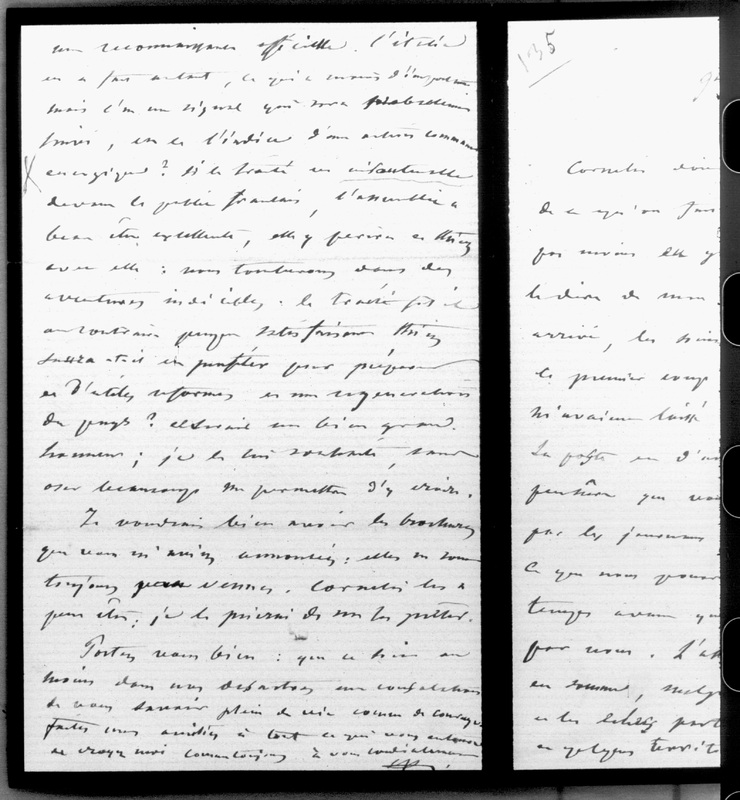 une reconnaissance officielle. l'italie
en a fait autant, ce qui a moins d'importance
mais c'en un signal qui sera probablement
suivi, en et l'indice d'une action commune
énergique? Si le traité en
devant le public français, l'assemblée a
beau être excellente, elle y périra et Thiers
avec elle : nous tomberons dans des
aventures indicibles. le traité fut il
au contraire presque satisfaisant Thiers
saura-t-il en profiter pour préparer
et d'utiles réformes et une régénération
du pays? ce serait un bien grand
honneur ; je le lui souhaite, sans
oser beaucoup me permettre d'y croire.
Je voudrais bien avoir les brochures
que vous m'aviez annoncées : elles ne sont
toujours pas venues. Cornelis les a
peut être ; je le prierai de me les prêter.
Portez vous bien : que ce soit au
moins dans nos désastres une consolation
de vous savoir plein de vie comme de courage
faites mes amitiés à tout ce qui vous entoure
et croyez moi comme toujours à vous cordialement
135
Cornelis
de ce qu'on
pas moins
le dire de mon
arrivé, les
le premier coup
m'avaient laissé
La poste
peut-être que
par les journaux
Ce que nous
temps avant
par nous. L'as
en somme, malg
et les
en quelques territo